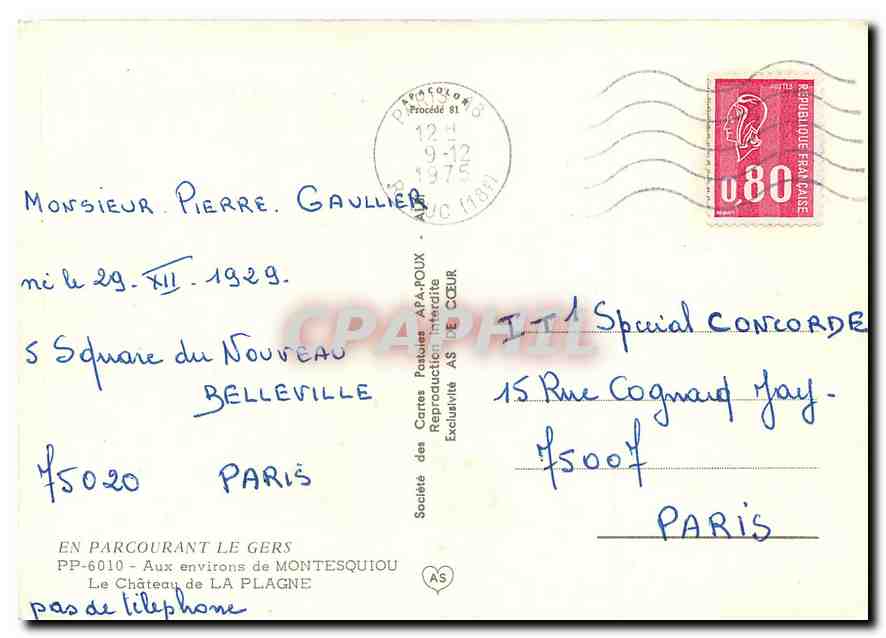 APACOLOR
Procédé 81
PARIS 18
12 H
9-12
1975
(18E)
POSTES
REPUBLIQUE FRANÇAISE
0,80
MONSIEUR. PIERRE. GAULLIER
né le 29. XII. 1929.
5 Square du NOUVEAU
BELLEVILLE
75020 PARIS
EN PARCOURANT LE GERS
PP-6010 - Aux environs de MONTESQUIOU
Le Château de LA PLAGNE
pas de téléphone
Société des Cartes Postales APA-POUX -
Reproduction Interdite
Exclusivité AS DE CŒUR
AS
IT1 Spécial CONCORDE
15 Rue Cognacq Jay-
75007
PARIS
CPAPHIL